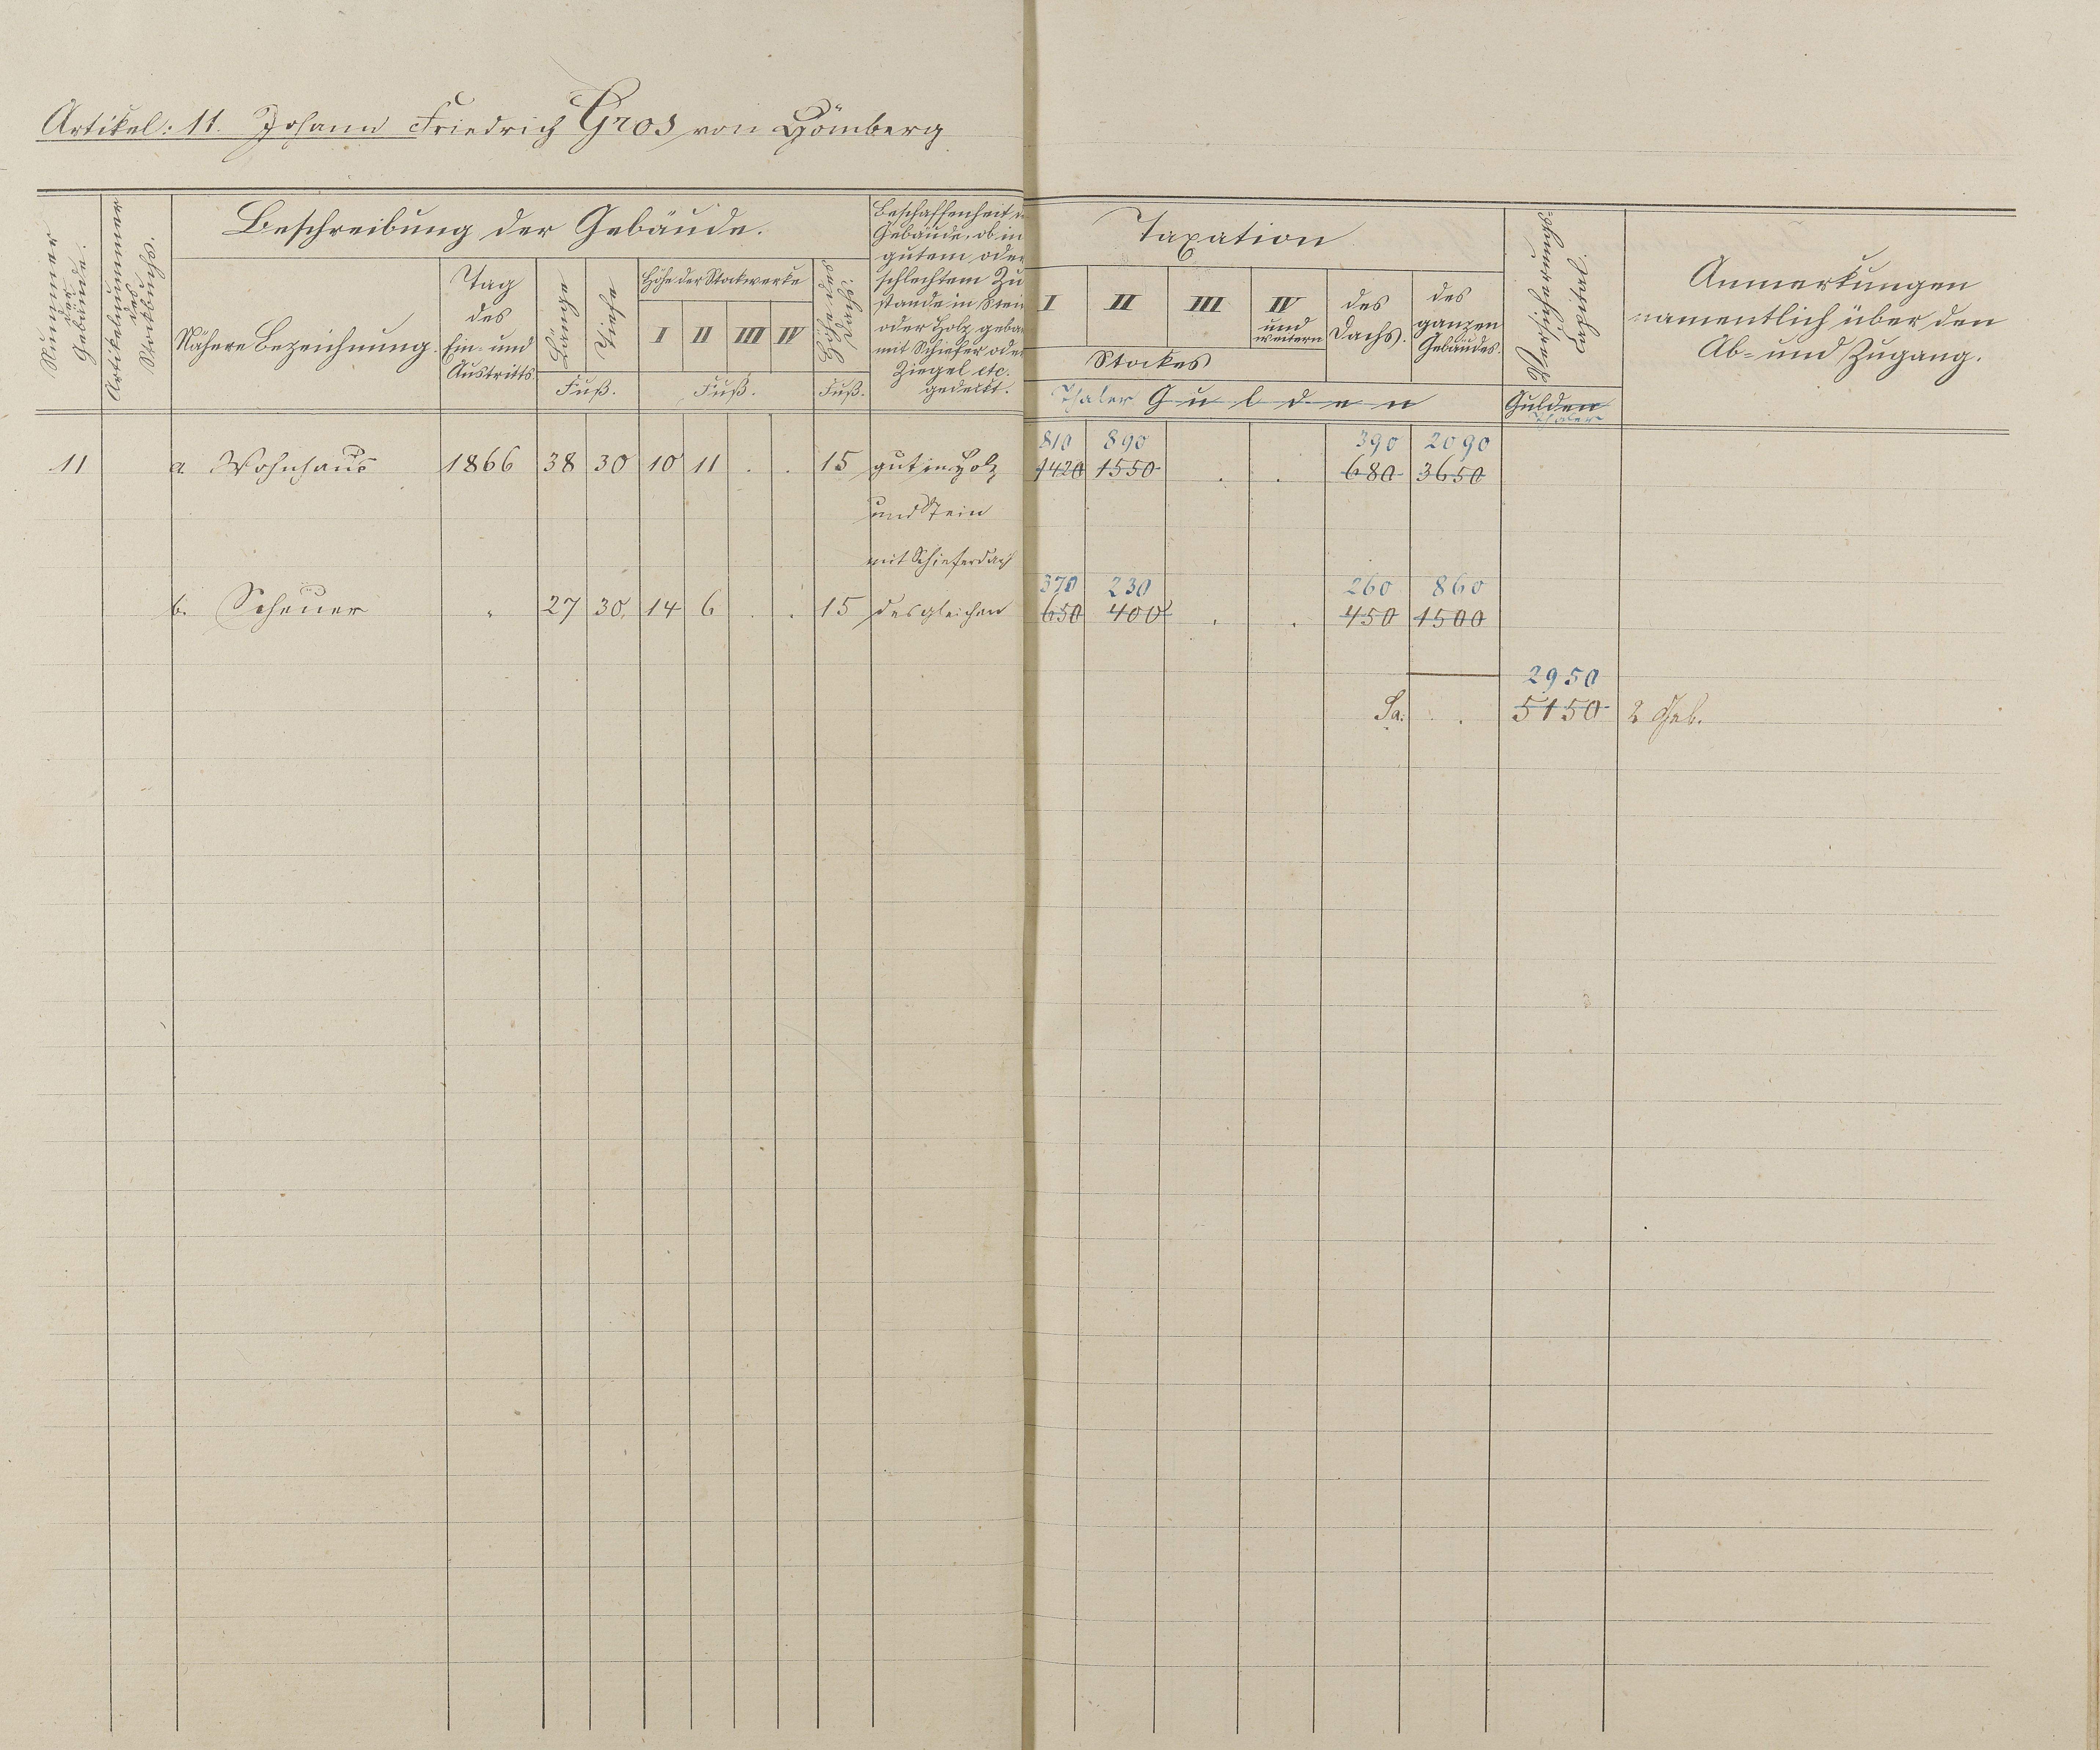 Artikel: 11. Johann Friedrich Gros von Hömberg
Nummer der Gebäude.
Artikelnummer des Stockbuchs.
Beschreibung der Gebäude.
Nähere Bezeichnung.
Tag des Ein- und Austritts.
Länge
Tiefe
Fuß.
Höhe der Stockwerke
I II III IV
Fuß.
Höhe des Dachs.
Fuß.
Beschaffenheit d
Gebäude, ob in
gutem oder
schlechtem Zu
stande in Stein
oder Holz gebau
mit Schiefer oder
Ziegel etc.
gedeckt.
Taxation
I II III IV und weitern
Stockes
des Dachs.
des ganzen Gebäudes.
Thaler Gulden
Versicherungs-
Capital.
Gulden
Thaler
Anmerkungen
namentlich über den
Ab- und Zugang.
810 890 390 2090
11 a Wohnhaus 1866 38 30 10 11 . . 15 gut in Holz 1420 1550 . . 680 3650
und Stein
mit Schieferdach
370 230 260 860
b. Scheuer " 27 30. 14 6 . . 15 desgleichen 650 400 . . 450 1500
2950
Sa. . 5150 2 Geb.